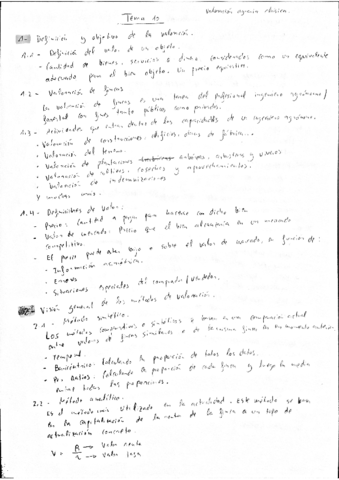 Tema 10
valoración agraria clásica.
1.- Definición y objetivo de la valoración.
1.1 - Definición del valor de un objeto.
- Cantidad de bienes, servicios o dinero considerados como un equivalente
adecuado para el bien objeto. Un precio equitativo.
1.2 - Valoración de fincas
La valoración de fincas es una tarea del profesional ingeniero agrónomo/
forestal con fines tanto públicos como privados.
1.3 - Actividades que entran dentro de las capacidades de un ingeniero agrónomo.
- Valoración de construcciones, edificios, obras de fábrica...
- Valoración del terreno.
- Valoración de plantaciones arbóreas, arbustivas y viveros
- Valoración de cultivos, cosechas y aprovechamientos.
- Valoración de indemnizaciones
y muchas más.
1.4 - Definiciones de valor:
- Precio: Cantidad a pagar para hacerse con dicho bien
- Valor de mercado: Precio que el bien alcanzaría en un mercado
competitivo.
- El precio puede estar bajo o sobre el valor de mercado, en función de:
- Información asimétrica.
- Errores
- Situaciones especiales del comprador/vendedor.
Visión general de los métodos de valoración.
2.1 - Método sintético.
Los métodos comparativos o sintéticos se basan en una comparación
entre valores de fincas similares o de la misma finca en un momento anterior.
- Temporal
- Baricéntrico: calculando la proporción de todos los datos.
- Por ratios: Calculando la proporción de cada finca y luego la media
entre todas las proporciones.
2.2 - Método analítico.
Es el método más utilizado en la actualidad. Este método se basa
en la capitalización de la renta de la finca a un tipo de
actualización concreto.
V = R → renta
r →